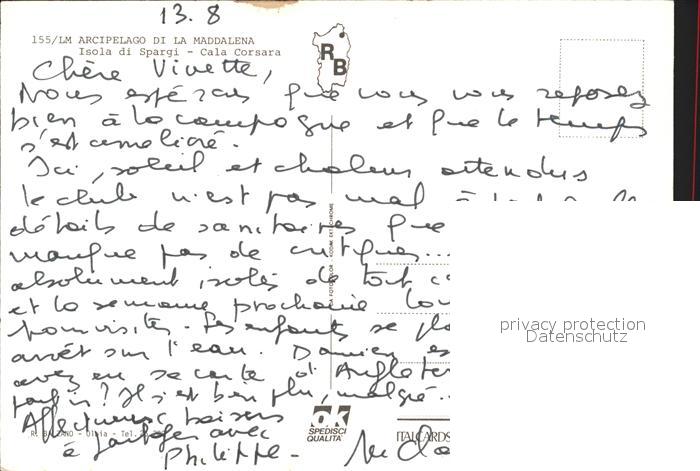 13.8
155/LM ARCIPELAGO DI LA MADDALENA
Isola di Spargi - Cala Corsara
R B
Chère Vivette,
Nous espérons que vous vous reposez
bien à la campagne et que le temps
s'est amélioré.
Ici, soleil et chaleur attendus
le club n'est pas mal à
détails de sanitaires que
manque pas de critiques...
absolument isolés de tout
et la semaine prochaine
pour visiter. Les enfants se
arrêt sur l'eau. Damien
avez eu sa carte d'Angleter
parfois? Il s'est bien plu, malgré..
Affectueux baisers
à partager avec
Philippe -
R. Olbia - Tel.
OK
SPEDISCI
QUALITA'
ITALCARDS
privacy protection
Datenschutz